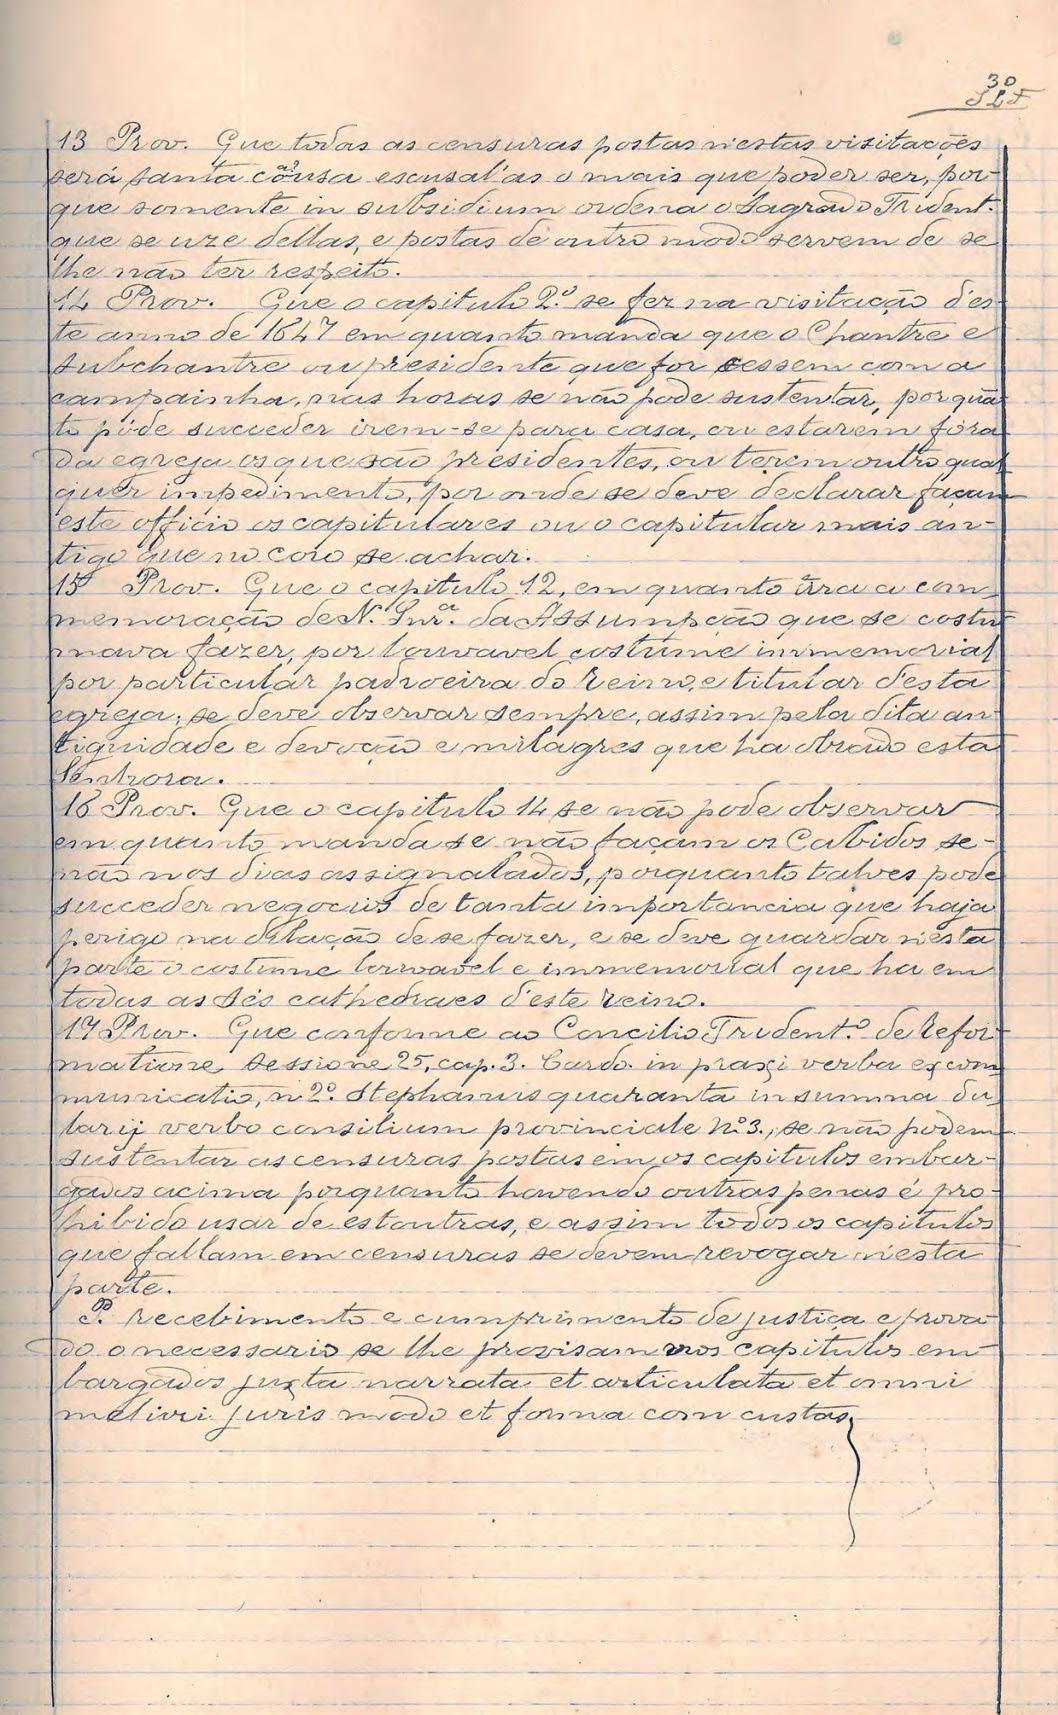 30
13 Prov. Que todas as censuras postas n'estas visitações
será santa cousa escusal'as o mais que poder ser, por-
que somente in subsidium ordena o Sagrado Trident.
que se uze dellas, e postas de outro modo servem de se
lhe não ter respeito.
14 Prov. Que o capitulo 2.º se fez na visitação d'es-
te anno de 1647 em quanto manda que o Chantre e
subchantre ou presidente que for cessem com a
campainha, nas horas se não pode sustentar, porquã-
to póde succeder irem-se para casa, ou estarem fóra
da egreja os que são presidentes, ou terem outro qual-
quer impedimento, por onde se deve declarar façam
este officio os capitulares ou o capitular mais an-
tigo que no coro se achar.
15 Prov. Que o capitulo 12, em quanto tira a com-
memoração de N. Snr.ª da Assumpção que se costu-
mava fazer, por louvavel costume immemorial
por particular padroeira do Reino, e titular d'esta
egreja, se deve observar sempre, assim pela dita an-
tiguidade e devoção e milagres que ha obrado esta
Senhora.
16 Prov. Que o capitulo 14 se não pode observar
em quanto manda se não façam os Cabidos se-
não nos dias assignalados, porquanto talves pode
succeder negocios de tanta importancia que haja
perigo na dilação de se fazer, e se deve guardar n'esta
parte o costume louvavel e immemorial que ha em
todas as Sés cathedraes d'este Reino.
17 Prov. Que conforme ao Concilio Trident.º de Refor-
matione sessione 25, cap. 3. Cardo. in praxi verba excom
municatio, n 2º. Stephanus quaranta in summa bu-
larij verbo consilium provinciale N.º 3., se não podem
sustentar as censuras postas em os capitulos embar-
gados acima porquanto havendo outras penas é pro-
hibido usar de estoutras, e assim todos os capitulos
que fallam em censuras se devem revogar n'esta
parte.
P. recebimento e cumprimento de justiça e prova-
do o necessario se lhe provisam nos capitulos em-
bargados juxta narrata et articulata et omni
meliori juris modo et forma com custas